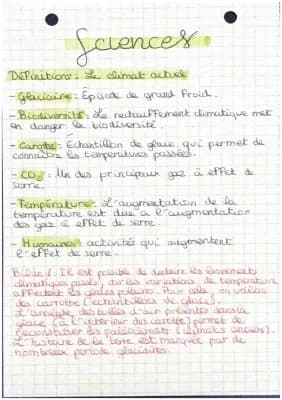 Sciences
Définitions : Le climat actuel
- Glaciaire : Épisode de grand froid.
- Biodiversité : Le rechauffement climatique met
en danger la biodiversité.
- Carotte : Echantillon de glace qui permet de
connaître les températures passées.
- CO2 : Un des principaux gaz à effet de
serre.
- Température : L'augmentation de la
température est due a l'augmentation
des gaz à effet de serre.
- Humaines : activités qui augmentent
l'effet de serre.
Bilan 1 : Il est possible de retracer les événements
climatiques passés, car les variations de température
affectent les glaces polaires. Pour cela, on
des carottes (echantillons de glace).
L'analyse des bulles d'air présentes dans la
glace (à l'intérieur des carottes) permet de
reconstituer les paléoclimats (climats anciens).
L'histoire de la terre est marquée par de
nombreux période glaciaires.